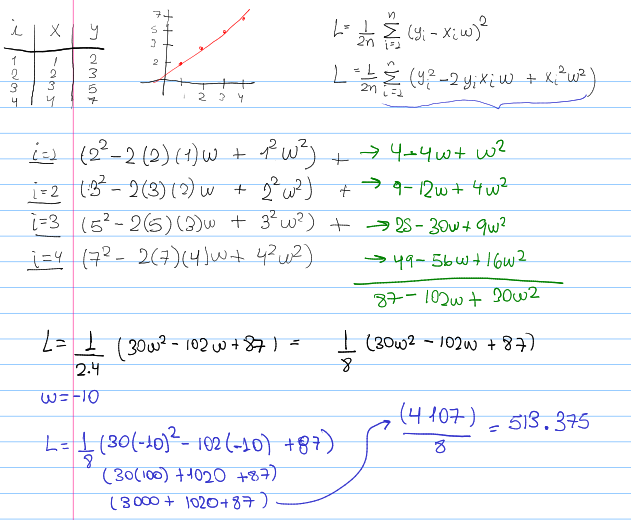 i x y
1 1 2
2 2 3
3 3 5
4 4 7
7
5
3
2
1 2 3 4
L = 1/2n Σ_{i=1}^{n} (y_i - x_i w)^2
L = 1/2n Σ_{i=1}^{n} (y_i^2 - 2y_i x_i w + x_i^2 w^2)
i=1 (2^2 - 2(2)(1)w + 1^2 w^2) + → 4 - 4w + w^2
i=2 (3^2 - 2(3)(2)w + 2^2 w^2) + → 9 - 12w + 4w^2
i=3 (5^2 - 2(5)(3)w + 3^2 w^2) + → 25 - 30w + 9w^2
i=4 (7^2 - 2(7)(4)w + 4^2 w^2) → 49 - 56w + 16w^2
87 - 102w + 30w^2
L = 1/2.4 (30w^2 - 102w + 87) = 1/8 (30w^2 - 102w + 87)
w = -10
L = 1/8 (30(-10)^2 - 102(-10) + 87)
(30(100) + 1020 + 87)
(3000 + 1020 + 87)
(4107)/8 = 513.375